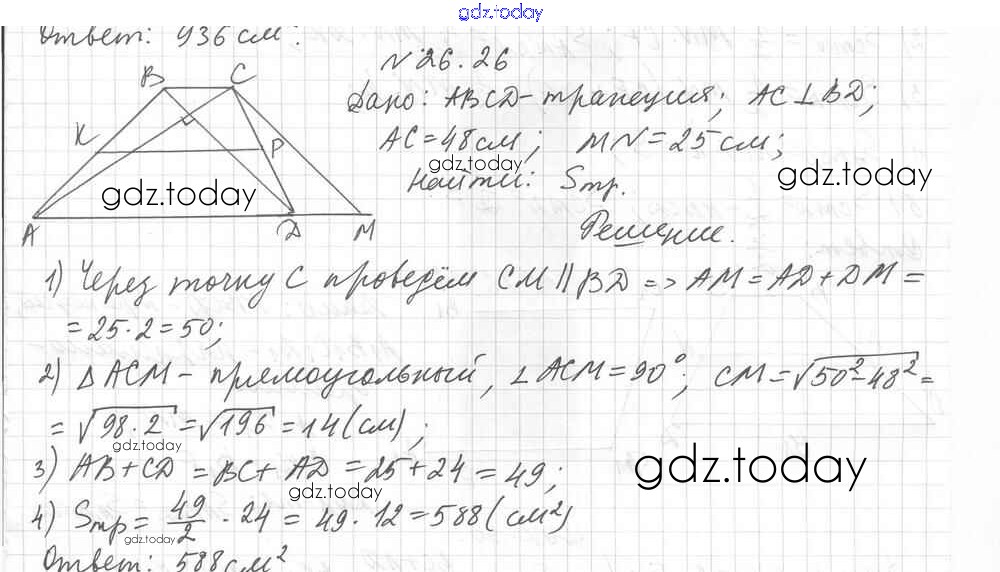 gdz.today
Ответ: 936 см².
N 26.26
B C
Дано: ABCD - трапеция; AC ⊥ BD;
K P
AC = 48 см; MN = 25 см;
gdz.today
gdz.today
gdz.today
Найти: Sтр.
A D M
Решение.
1) Через точку C проведём CM || BD => AM = AD + DM =
= 25·2 = 50;
2) △ ACM - прямоугольный, ∠ACM = 90°; CM = √50²-48² =
= √98·2 = √196 = 14 (см);
gdz.today
3) AB + CD = BC + AD = 25 + 24 = 49;
gdz.today
gdz.today
4) Sтр = 49/2 · 24 = 49 · 12 = 588 (см²)
gdz.today
Ответ: 588 см²